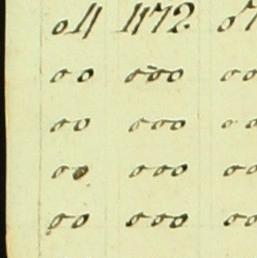 04 472 07
00 000 00
00 000 00
00 000 00
00 000 00